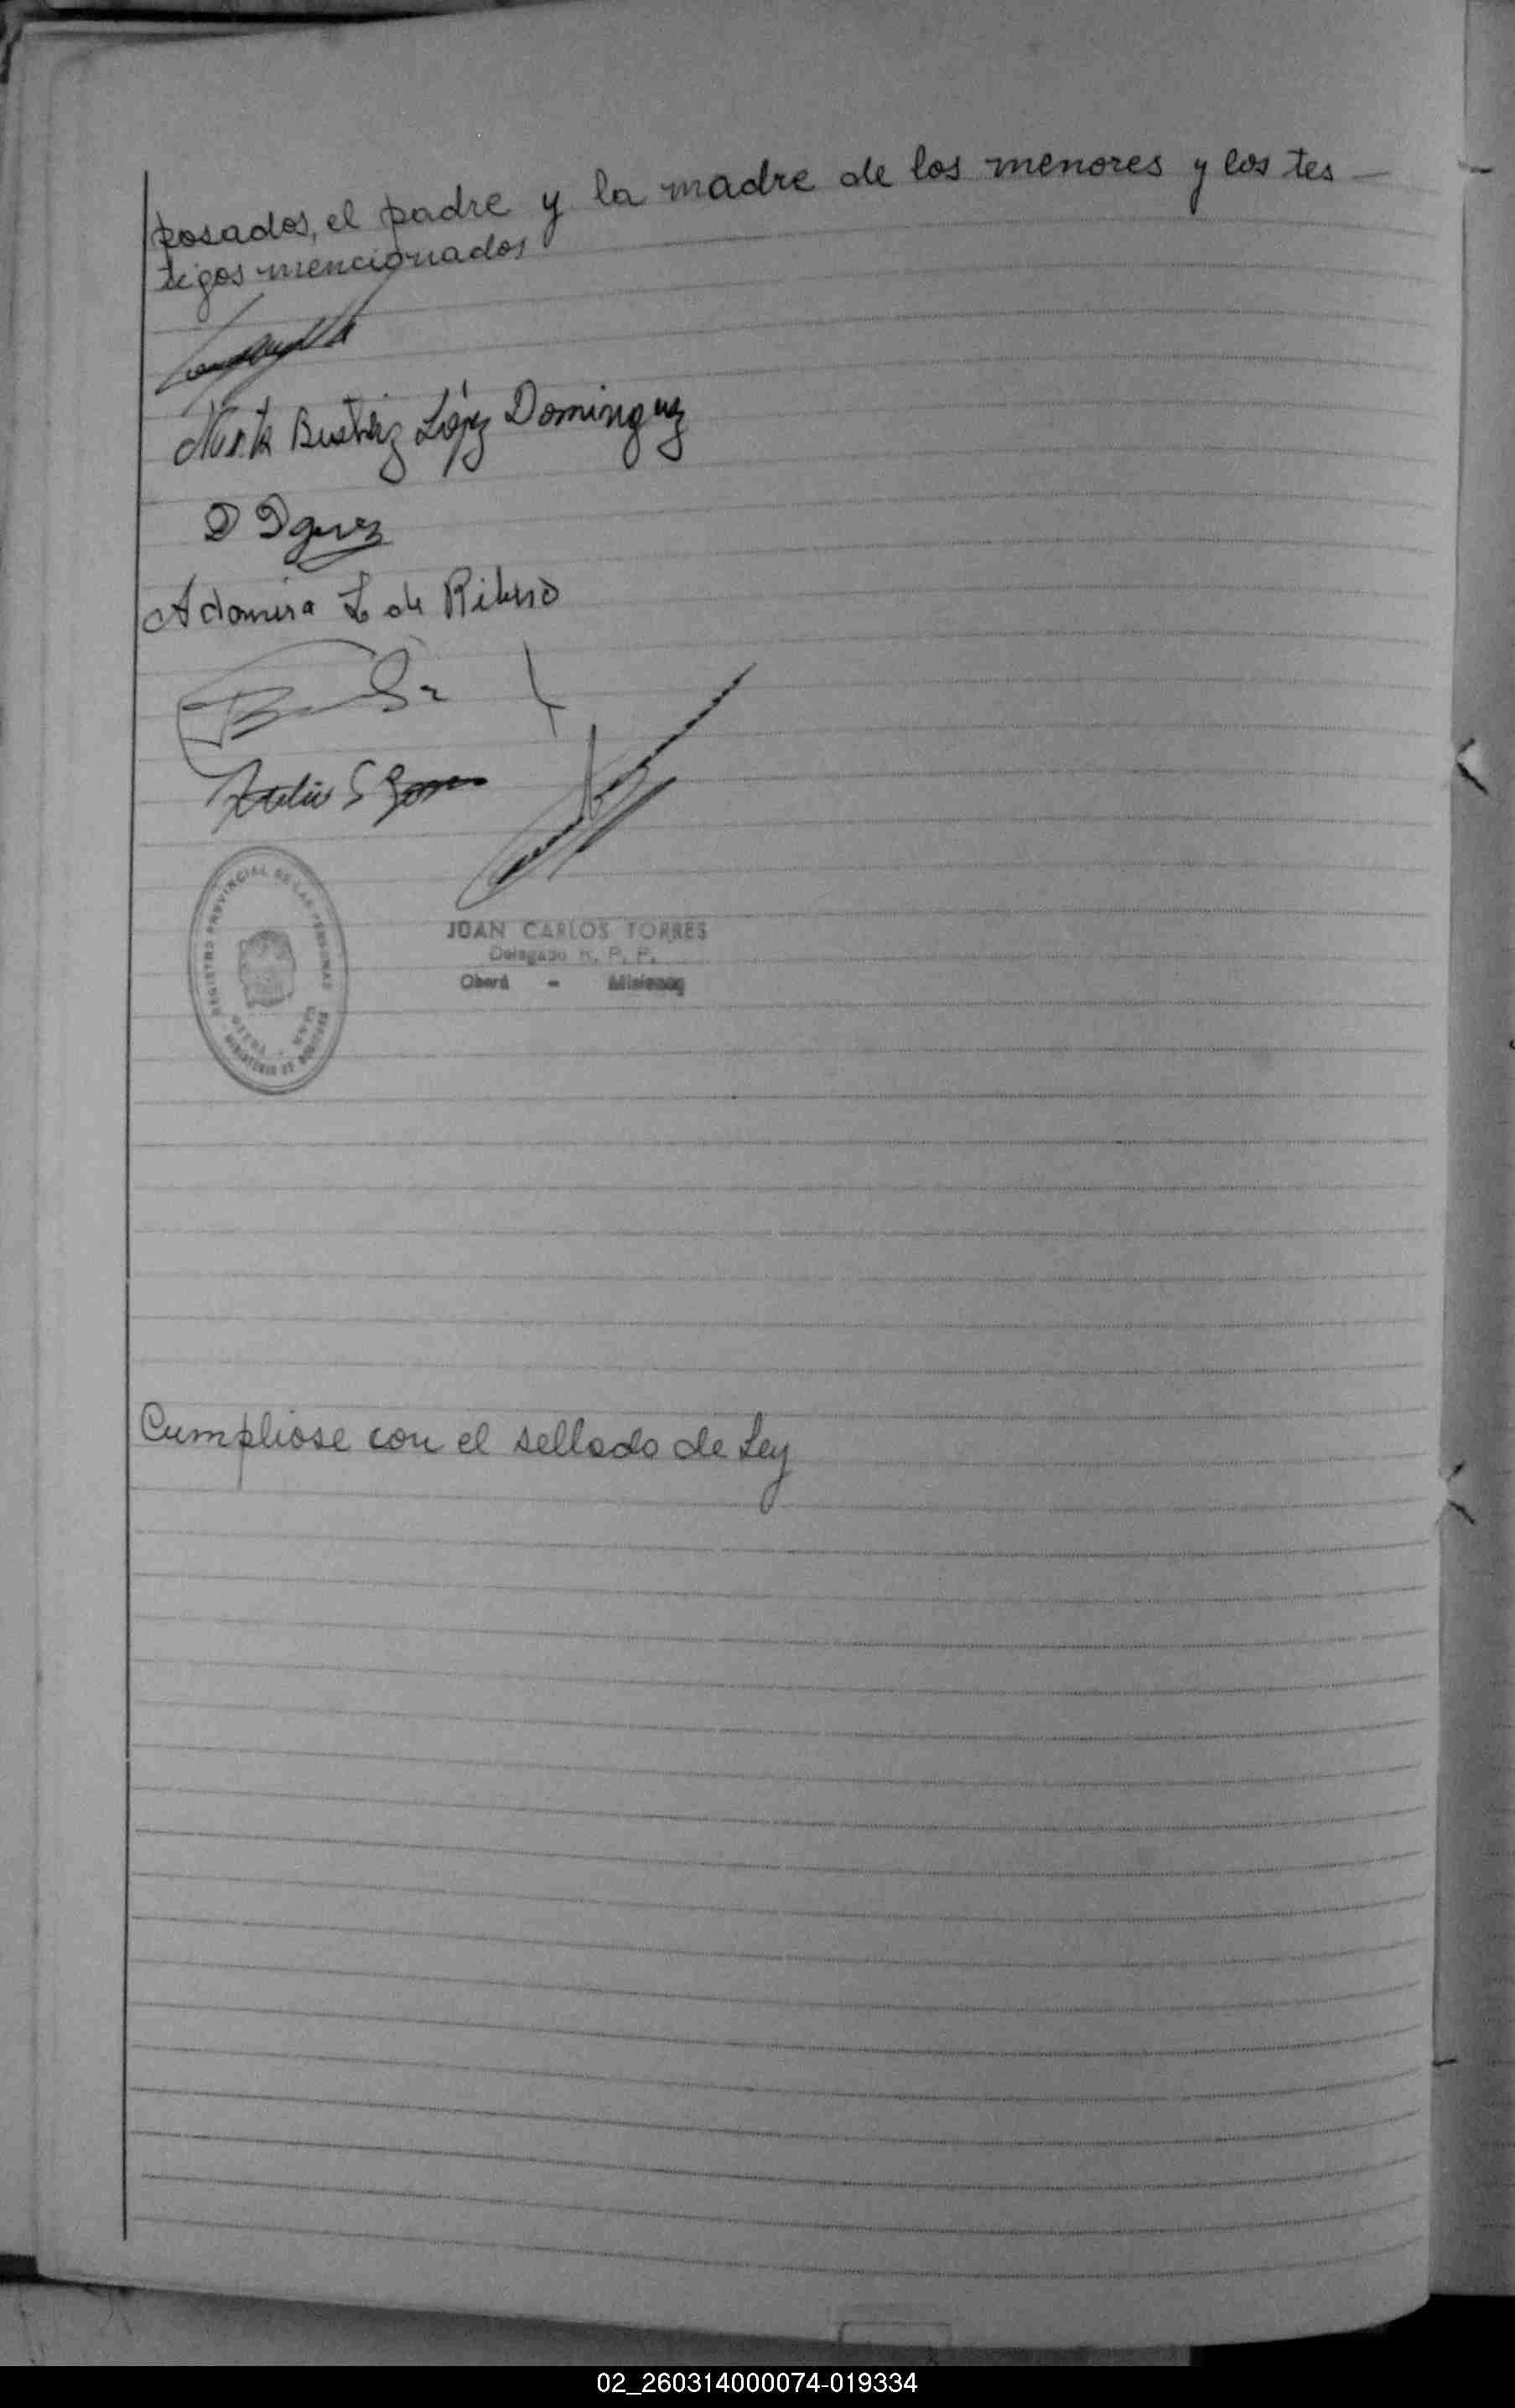 posados, el padre y la madre de los menores y los tes
tigos mencionados
Beatriz López Dominguez
D Dguez
Adomira L de Ribero
REGISTRO PROVINCIAL DE LAS PERSONAS
MINISTERIO DE
JUAN CARLOS TORRES
Delegado R. P. P.
Oberá - Misiones
Cumpliose con el sellado de Ley
02_260314000074-019334